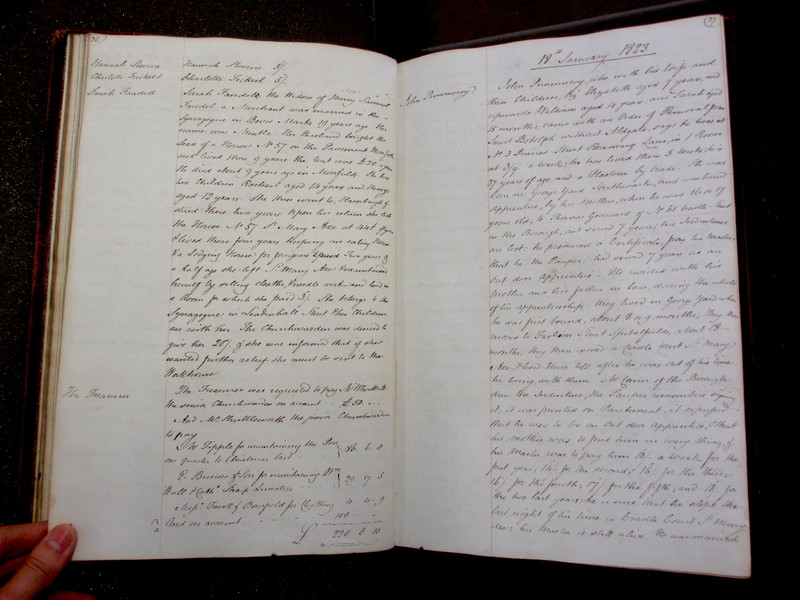 36
Hannah Stevens Hannah Stevens 5/.
Charlotte Fickest Charlotte Fickest 5/.
Sarah Fundell Sarah Fundell the Widow of Henry Samuel
Fundel a Merchant was married in the
Synagogue in Bevis Marks 19 years ago Her
name was Her Husband bought the
Lease of a House No. 57 on the Pavement Moorfields
and lived there 9 years the Rent was £30 a year
He died about 9 years ago in Moorfields She has
two Children Rachael aged 14 years and
aged 12 years. She then went to Hamburgh &
staid there two years Upon her return she took
the House No 57 St. Mary Axe at
& lived there four years Keeping an eating House
& a Lodging House for foreigners Two years &
a half ago she left St. Mary Axe & maintained
herself by selling cloaths, & needle work and lived in
a Room for which she paid 3/. She belongs to the
Synagogue in Leadenhall Street & Her Children
are with her. The Churchwarden was desired to
give her 20/. & she was informed that if she
wanted further relief she must be sent to the
Workhouse
The Treasurer The Treasurer was requested to pay Mr
the senior Churchwarden on account £50 ..
And Mr. Shuttleworth the junior Churchwarden
to pay
Tipple for maintaining the Poor
one quarter to Christmas last 86. 6. 8
E. Burrow & Son for maintaining Wm
Wall & Cathe. Sharp Lunatics 29 17 5
Messrs. & Banfield for Cloathing 4. 4. 9
And on account 110
£ 230. 8 10
37
18th January 1823
John Pummeroy John Pummeroy, who with his Wife and
three Children, Elizabeth aged 7 years, and
upwards William aged 4 years, and Sarah aged
15 months, came with an Order of Removal from
Saint Botolph without Aldgate, says he lives at
No 3 Princes Street Rosemary Lane, in 1 Room
at 3/9 a week; he has lived there 3 weeks; he is
37 years of age and a Plasterer by trade He was
born in George Yard Southwark, and was bound
Apprentice, by his Mother, when he was 16 or 17
years old, to Thomas Goddard of No 61 Street
in the Borough, and served 7 years; his Indentures
are lost: he produced a Certificate, from his Master,
that he (the Pauper) had served 7 years as an
out door apprentice. He resided with his
Mother and his father in law, during the whole
of his apprenticeship. They lived in George Yard when
he was first bound, about 8 or 9 months, they then
moved to Street Spitalfields, about 18
months, they then moved to Castle Court St. Mary
Axe, & lived there till after he was out of his time
he living with them. Mr. Carver of the Borough
drew the Indenture, the Pauper remembers signing
it; it was printed on Parchment, it expressed
that he was to be an out door apprentice, & that
his mother was to find him in every thing, &
his Master was to pay him 13/. a week for the
first year; 14/. for the second; 15/. for the third;
16/. for the fourth; 17/. for the fifth; and 18/. for
the two last years: he is sure that he slept the
last night of his time, in Castle Court St. Mary
Axe; his Master is still alive. He was married